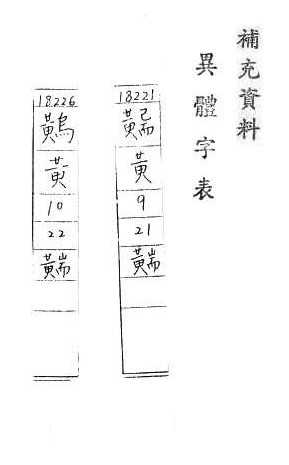 補充資料
異體字表
18221
黃
9
21
䵎
18226
黃
10
22
䵎